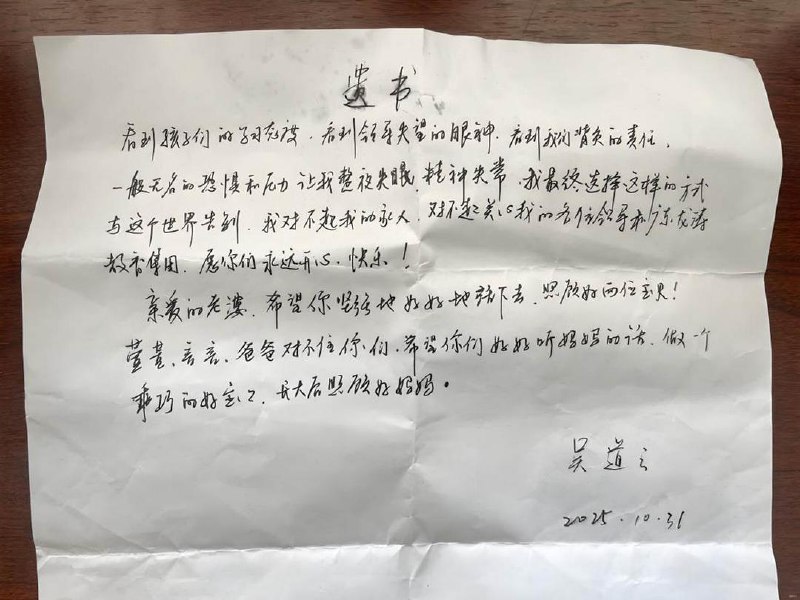 遗书
看到孩子们的学习态度,看到领导失望的眼神,看到我们背负的责任,
一般无名的恐惧和压力让我整夜失眠,精神失常,我最终选择这样的方式
与这个世界告别,我对不起我的家人,对不起关心我的各位领导和广东龙涛
教育集团,愿你们永远开心、快乐!
亲爱的老婆,希望你坚强地好好地活下去,照顾好两位宝贝!
萱萱、言言,爸爸对不住你们,希望你们好好听妈妈的话,做一个
乖巧的好宝宝,长大后照顾好妈妈。
吴道
2025.10.31